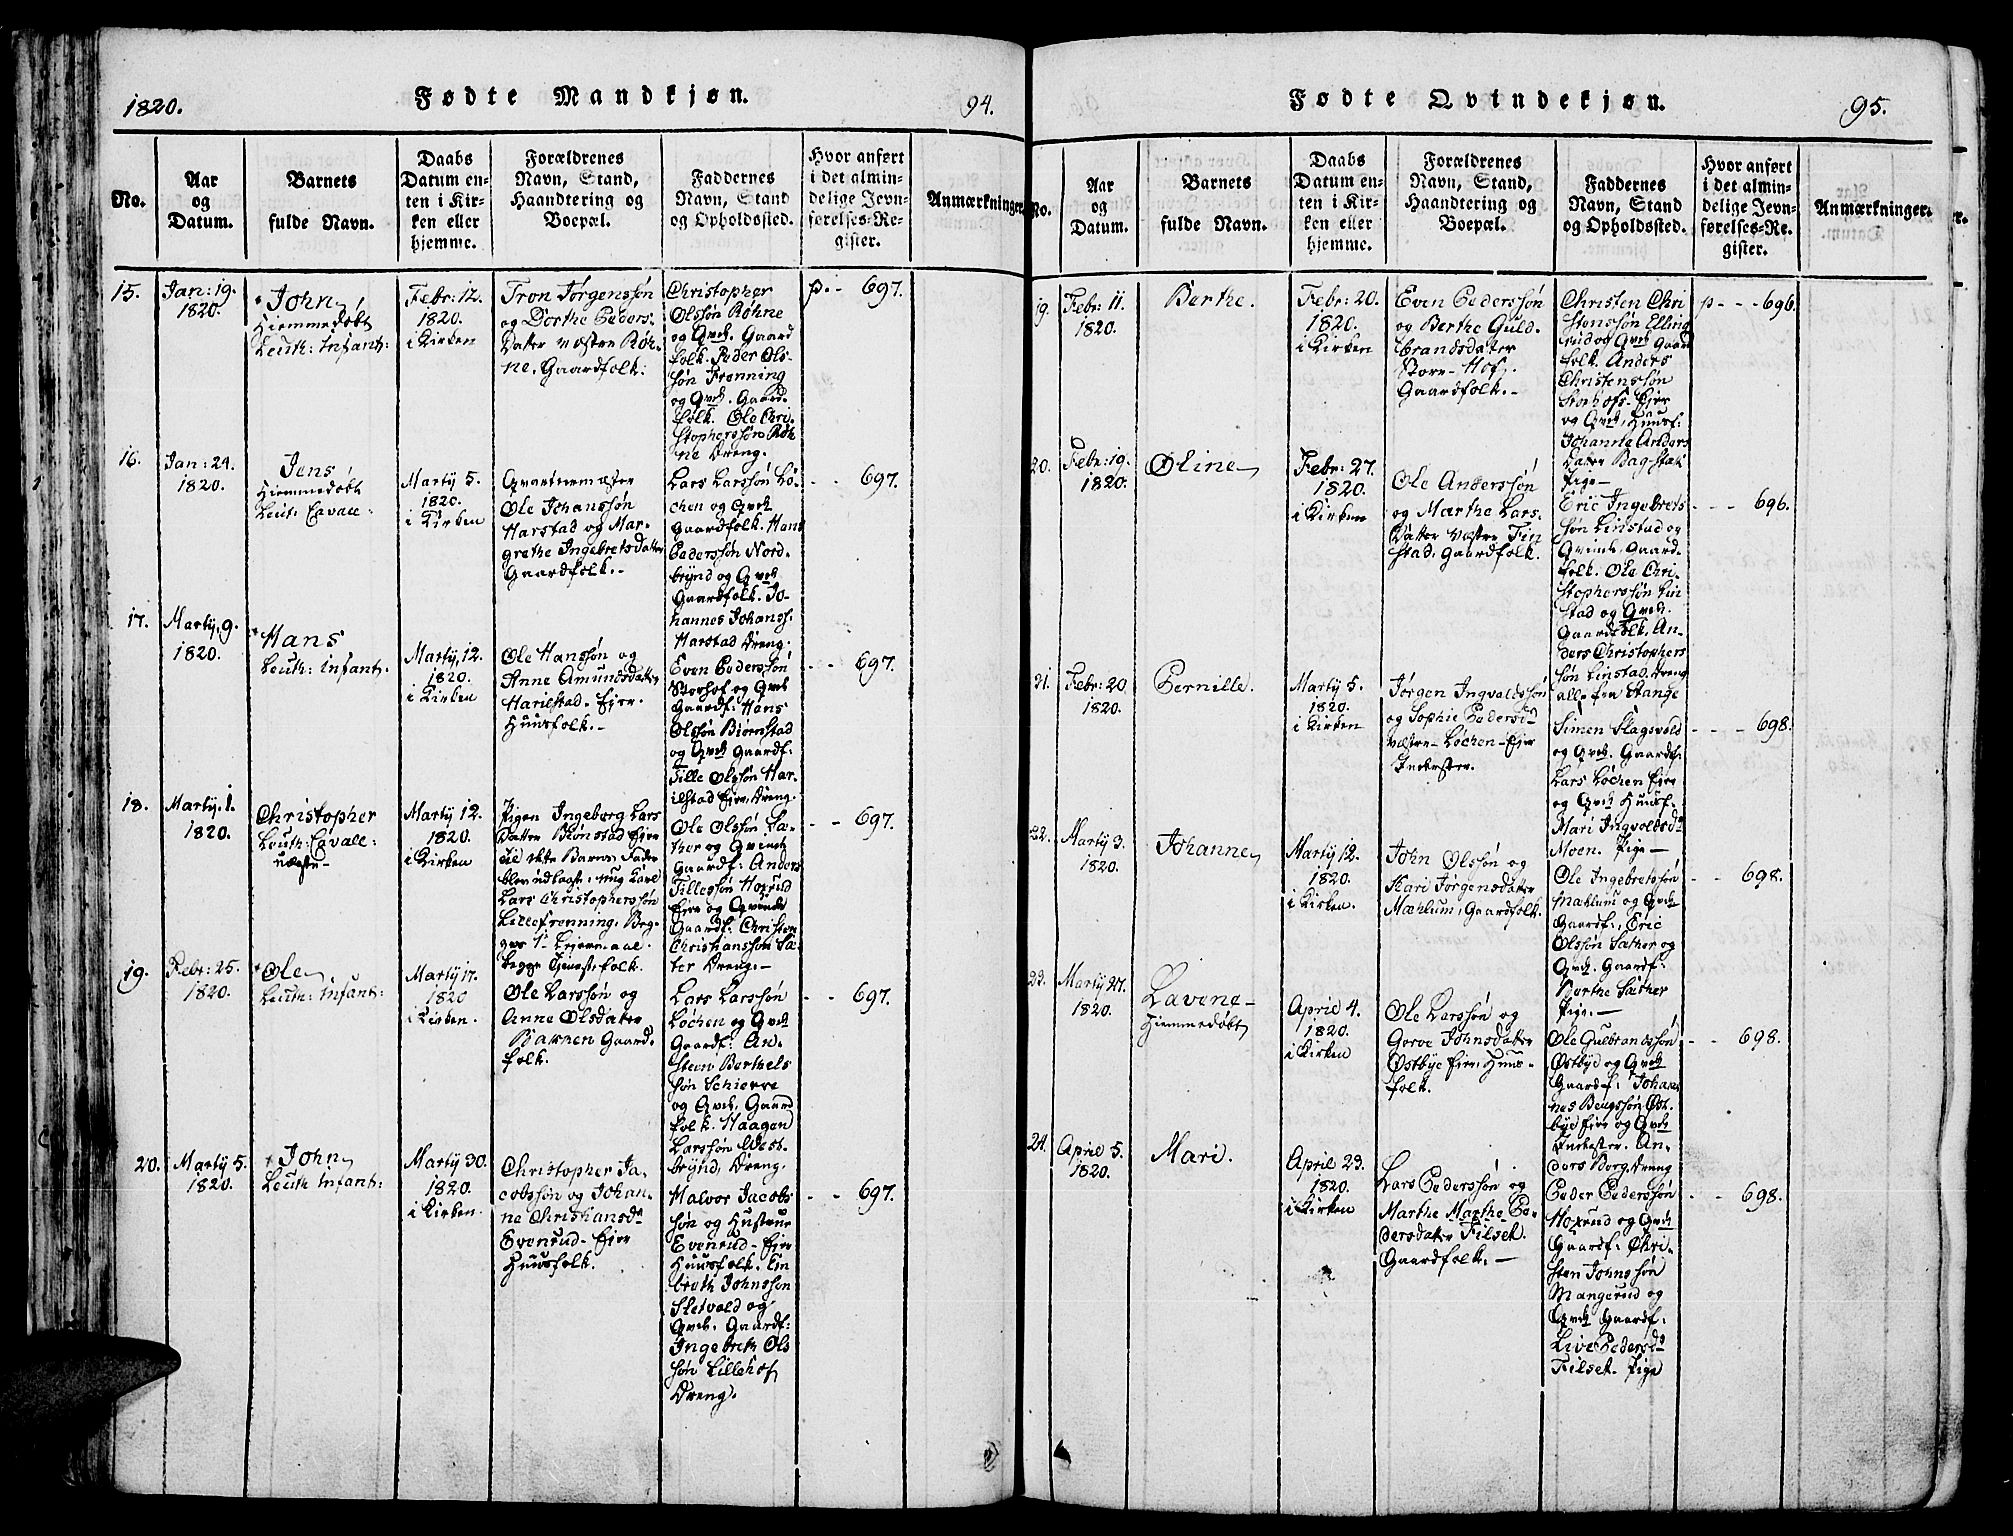 1820.
Fødte Mandkjøn.
94.
No.
Aar
og
Datum.
Barnets
fulde Navn.
Daabs
Datum en-
ten i Kir-
ken eller
hjemme.
Forældrenes
Navn, Stand,
Haandtering og
Boepæl.
Faddernes
Navn, Stand
og Opholdssted.
Hvor anført
i det almin-
delige Jevn-
førelses-Re-
gister.
Anmærkninger
15.
Jan: 19.
1820.
John
Hiemmedøbt
Leuth: Infant:
Febr: 12.
1820.
i Kirken
Tron Jørgenssøn
og Dorthe Peders-
Datter Væstre Røh-
ne. Gaardfolk.
Christopher
Olssøn Røhne
og Qvd. Gaard
folk. Peder Ols-
søn Frønning
og Qvd. Gaard-
folk. Ole Chri-
stopherssøn Røh
ne Dreng.
p. - 697.
16.
Jan: 24.
1820.
Jens
Hiemmedøbt
Leut: Cavall:
Marty 5.
1820.
i Kirken
Qvarteermester
Ole Johanssøn
Harstad og Mar-
grethe Ingebretsdatter
Gaardfolk.-
Lars Larssøn Lö-
chen og Qvd.
Gaardfolk. Hans
Pederssøn Nord-
brÿnd og Qvd.
Gaardfolk. Jo-
hannes Johanss:
Harstad Dreng.
- - 697.
17.
Marty, 9.
1820.
Hans
Leuth: Infant.
Marty, 12.
1820.
i Kirken
Ole Hanssøn og
Anne Amundsdatter
Harilstad. Ejer-
Huusfolk.-
Even Pederssøn
Storhof og Qvd.
Gaardf: Hans
Olssøn Biørnstad
og Qvd. Gaardf.
Tille Olssøn Har-
ilstad Eje, Dreng.
- - 697.
18.
Marty, 1.
1820.
Christopher
Leuth: Cavall:
uægte-
Marty 12.
1820.
i Kirken
Pigen Ingeborg Lars
Datter Biønstad Ejer
til dette Barns Fader
blev udlagt: ung Karl
Lars Christopherssøn
Lillefrønning, Beg-
ges 1ste Leiermaal.
begge Tjenestefolk.
Ole Olssøn Sæ-
ther og Qvinde
Gaardf: Anders
Tillessøn Hoxrud
Ejer og Qvinde
Gaardf: Christen
Christianssøn Sæ-
ter Dreng.-
- - 697.
19.
Febr: 25.
1820.
Ole
Leuth: Infant:
Marty 17.
1820
i Kirken.
Ole Larssøn og
Anne Olsdatter
Bakken Gaard-
folk.
Lars Larssøn
Løchen og Qvd.
Gaardf: An-
steen Berthels
søn Schierre
og Qvd. Gaard
folk. Haagen
Larssøn West-
brÿnd, Dreng.
- - 697.
20.
Marty 5.
1820.
John
Leuth Infant:
Marty 30.
1820.
i Kirken.
Christopher Ja-
cobssøn og Johan-
ne Christiansd.
Evenrud- Ejer
Huusfolk.
Halvor Jacobs
søn og Hustrue
Evenrud- Ejer
Huusfolk. En
gbreth Johnssøn
Sletvold og
Qvd. Gaardf:
Ingebreth Ols
søn Lillehof
Dreng.
- - 697.
Fødte Qvindekjøn.
95.
No.
Aar
og
Datum.
Barnets
fulde Navn.
Daabs
Datum en-
ten i Kir-
ken eller
hjemme.
Forældrenes
Navn, Stand,
Haandtering og
Boepæl.
Faddernes
Navn, Stand
og Opholdssted.
Hvor anført
i det almin-
delige Jevn-
førelses-Re-
gister.
Anmærkninger.
19.
Febr: 11.
1820.
Berthe.
Febr: 20.
1820.
i Kirken
Even Pederssøn
og Berthe Guld-
brandsdatter
Store- Hof.
Gaardfolk.-
Christen Chri
stenssøn Elling
rud og Qvd. Gaard
folk. Anders
Christenssøn
Storhofs- Ejer
og Qvd. Huusf:
Johanne Anders
Datter Bagstad
Pige-
p - - - 696.
20.
Febr: 19.
1820.
Oline
Febr: 27.
1820.
i Kirken
Ole Anderssøn
og Marthe Lars-
Datter Væstre Fin
stad. Gaardfolk.
Eric Ingebrets
søn Linstad og
Qvinde, Gaard-
folk. Ole Chri-
stopherssøn Lin
stad og Qvd.
Gaardfolk. An-
ders Christophers
søn Linstad. Dreng
alle fra Stange
- - - 696.
21.
Febr: 20.
1820.
Pernille.
Marty 5.
1820.
i Kirken
Jørgen Ingvaldssøn
og Sophie Pedersd.
væstre- Løchen- Ejer
Inderster.
Simen Slagsvold
og Qvd. Gaardf.
Lars Løchen Ejer
og Qvd. Huusf.
Mari Ingvoldsd.
Moen. Pige-
- - - 698.
22.
Marty 3.
1820.
Johanne
Marty 12.
1820.
i Kirken.
John Olssøn og
Kari Jørgensdatter
Mæhlum, Gaardfolk.
Ole Ingebretssøn
Mæhlum og Qvd.
Gaardf:, Eric
Olssøn Sæther og
Qvd. Gaardf:
Berthe Sæther
Pige.-
- - 698.
23.
Marty 27.
1820.
Lavene-
Hiemmedøbt
April 4.
1820.
i Kirken
Ole Larssøn og
Gorve Johnsdatter
Østbye Ejer, Huus-
folk.
Ole Gulbrandssøn
Østbyd og Qvd.
Gaardf: Johan
nes Bengssøn Øst-
bye Ejer og Qvd.
Inderster. An-
ders Borg, Dreng
- - 698.
24.
April 5.
1820.
Mari.
April 23.
1820.
i Kirken
Lars Pederssøn og
Marthe Marthe Pe-
dersdatter Filset.
Gaardfolk.-
Peder Pederssøn
Hoxrud og Qvd.
Gaardf: Chri-
sten Johnssøn
Mangerud og
Qvd. Gaardf:
Live Pedersd.
Filset. Pige
- - 698.